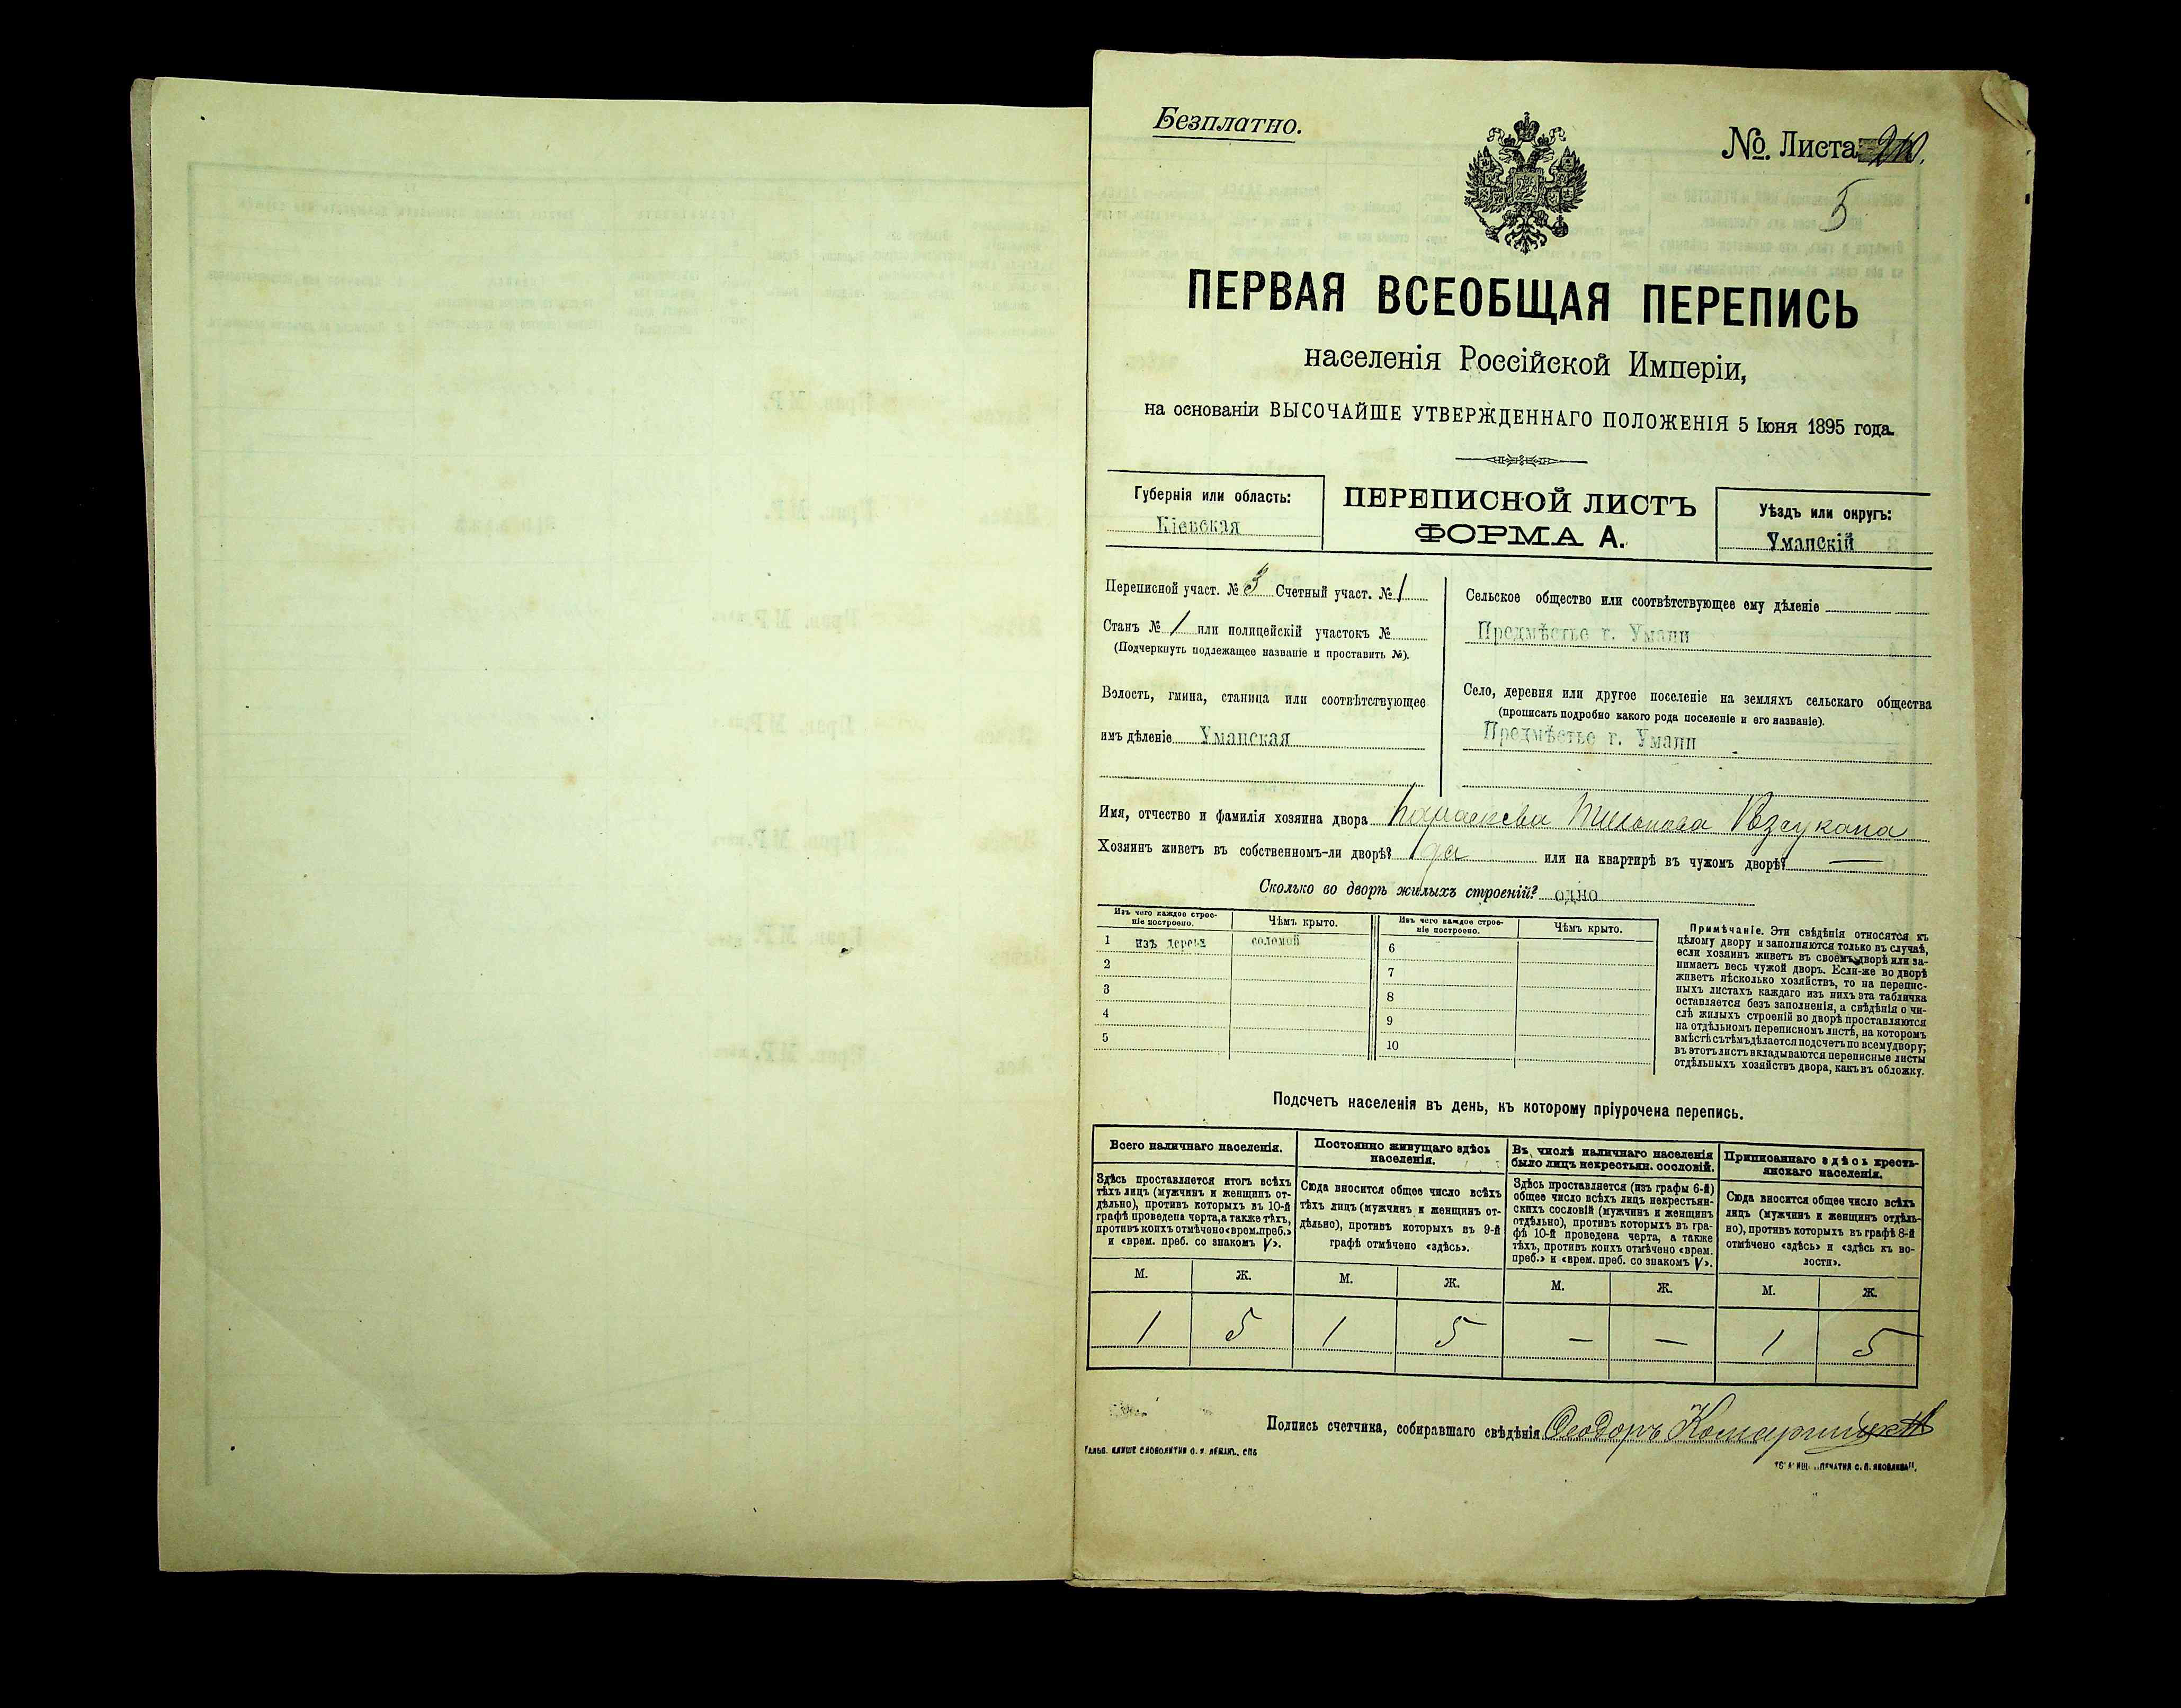 Безплатно.
№. Листа
5
ПЕРВАЯ ВСЕОБЩАЯ ПЕРЕПИСЬ
населенія Россійской Имперіи,
на основаніи ВЫСОЧАЙШЕ УТВЕРЖДЕННАГО ПОЛОЖЕНІЯ 5 Іюня 1895 года.
Губернія или область:
Кіевская
ПЕРЕПИСНОЙ ЛИСТЪ
ФОРМА А.
Уѣздъ или округъ:
Уманскій
Переписной участ. № 3 Счетный участ. № 1
Станъ № 1 или полицейскій участокъ №
(Подчеркнуть подлежащее названіе и проставить №).
Волость, гмина, станица или соотвѣтствующее
имъ дѣленіе Уманская
Сельское общество или соотвѣтствующее ему дѣленіе
Предмѣстье г. Умани
Село, деревня или другое поселеніе на земляхъ сельскаго общества
(прописать подробно какого рода поселеніе и его названіе).
Предмѣстье г. Умани
Имя, отчество и фамилія хозяина двора Параскева
Хозяинъ живетъ въ собственномъ-ли дворѣ? да или на квартирѣ въ чужомъ дворѣ? —
Сколько во дворѣ жилыхъ строеній? одно
Изъ чего каждое строе-
ніе построено.
Чѣмъ крыто.
Изъ чего каждое строе-
ніе построено.
Чѣмъ крыто.
1 изъ дерева соломой
2
3
4
5
6
7
8
9
10
Примѣчаніе. Эти свѣдѣнія относятся къ
цѣлому двору и заполняются только въ случаѣ,
если хозяинъ живетъ въ своемъ дворѣ или за-
нимаетъ весь чужой дворъ. Если-же во дворѣ
живетъ нѣсколько хозяйствъ, то на перепис-
ныхъ листахъ каждаго изъ нихъ эта табличка
оставляется безъ заполненія, а свѣдѣнія о чи-
слѣ жилыхъ строеній во дворѣ проставляются
на отдѣльномъ переписномъ листѣ, на которомъ
вмѣстѣ съ тѣмъ дѣлается подсчетъ по всему двору;
въ этотъ листъ вкладываются переписные листы
отдѣльныхъ хозяйствъ двора, какъ въ обложку.
Подсчетъ населенія въ день, къ которому пріурочена перепись.
Всего наличнаго населенія.
Здѣсь проставляется итогъ всѣхъ
тѣхъ лицъ (мужчинъ и женщинъ от-
дѣльно), противъ которыхъ въ 10-й
графѣ проведена черта, а также тѣхъ,
противъ коихъ отмѣчено «врем. преб.»
и «врем. преб. со знакомъ V».
Постоянно живущаго здѣсь
населенія.
Сюда вносится общее число всѣхъ
тѣхъ лицъ (мужчинъ и женщинъ от-
дѣльно), противъ которыхъ въ 9-й
графѣ отмѣчено «здѣсь».
Въ числѣ наличнаго населенія
было лицъ некрестьян. сословій.
Здѣсь проставляется (изъ графы 6-й)
общее число всѣхъ лицъ некрестьян-
скихъ сословій (мужчинъ и женщинъ
отдѣльно), противъ которыхъ въ гра-
фѣ 10-й проведена черта, а также
тѣхъ, противъ коихъ отмѣчено «врем.
преб.» и «врем. преб. со знакомъ V».
Приписаннаго здѣсь кресть-
янскаго населенія.
Сюда вносится общее число всѣхъ
лицъ (мужчинъ и женщинъ отдѣль-
но), противъ которыхъ въ графѣ 8-й
отмѣчено «здѣсь» и «здѣсь къ во-
лости».
М. Ж. М. Ж. М. Ж. М. Ж.
1 5 1 5 — — 1 5
Подпись счетчика, собиравшаго свѣдѣнія Ѳеодоръ